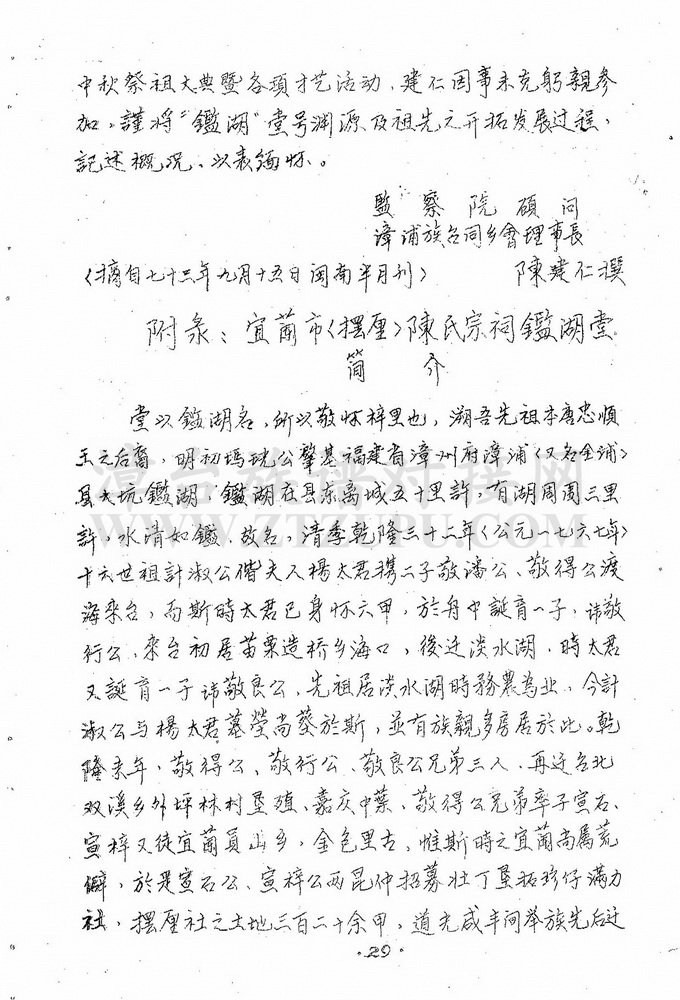 中秋祭祖大典暨各項才艺活动，建仁因事未克躬親参
加，謹将“鑑湖”堂号渊源及祖先之开拓发展过程，
記述概况，以表缅怀。
監察院顧问
漳浦族台同乡會理事長
〈摘自七十三年九月十五日闽南半月刊〉 陳建仁撰
附录：宜蘭市〈摆厘〉陳氏宗祠鑑湖堂
簡介
堂以鑑湖名，所以敬怀梓里也，溯吾先祖本唐忠順
王之后裔，明初瑪珖公肇基福建省漳州府漳浦〈又名金浦〉
县大坑鑑湖，鑑湖在县东离城五十里許，有湖周围三里
許，水清如鑑，故名，清季乾隆三十二年〈公元一七六七年〉
十六世祖計淑公偕夫人楊太君携二子敬潘公、敬得公渡
海來台，而斯時太君已身怀六甲，於舟中誕育一子，諱敬
行公，來台初居苗栗造桥乡海口，後迁淡水湖，時太君
又誕育一子諱敬良公，先祖居淡水湖時務農為业，今計
淑公与楊太君墓塋尚葵於斯，並有族親多房居於此。乾
隆末年，敬得公、敬行公、敬良公兄弟三人，再迁台北
双溪乡外坪林村垦殖，嘉庆中葉，敬得公兄弟率子宣石、
宣梓又徒宜蘭員山乡，金包里古，惟斯時之宜蘭尚属荒
僻，於是宣石公、宣梓公两昆仲招募壮丁垦拓珍仔满力
社，摆厘社之土地三百二十余甲，道光咸丰间举族先后迁
·29·
漳台族谱对接网
WWW.ZTZUPU.COM